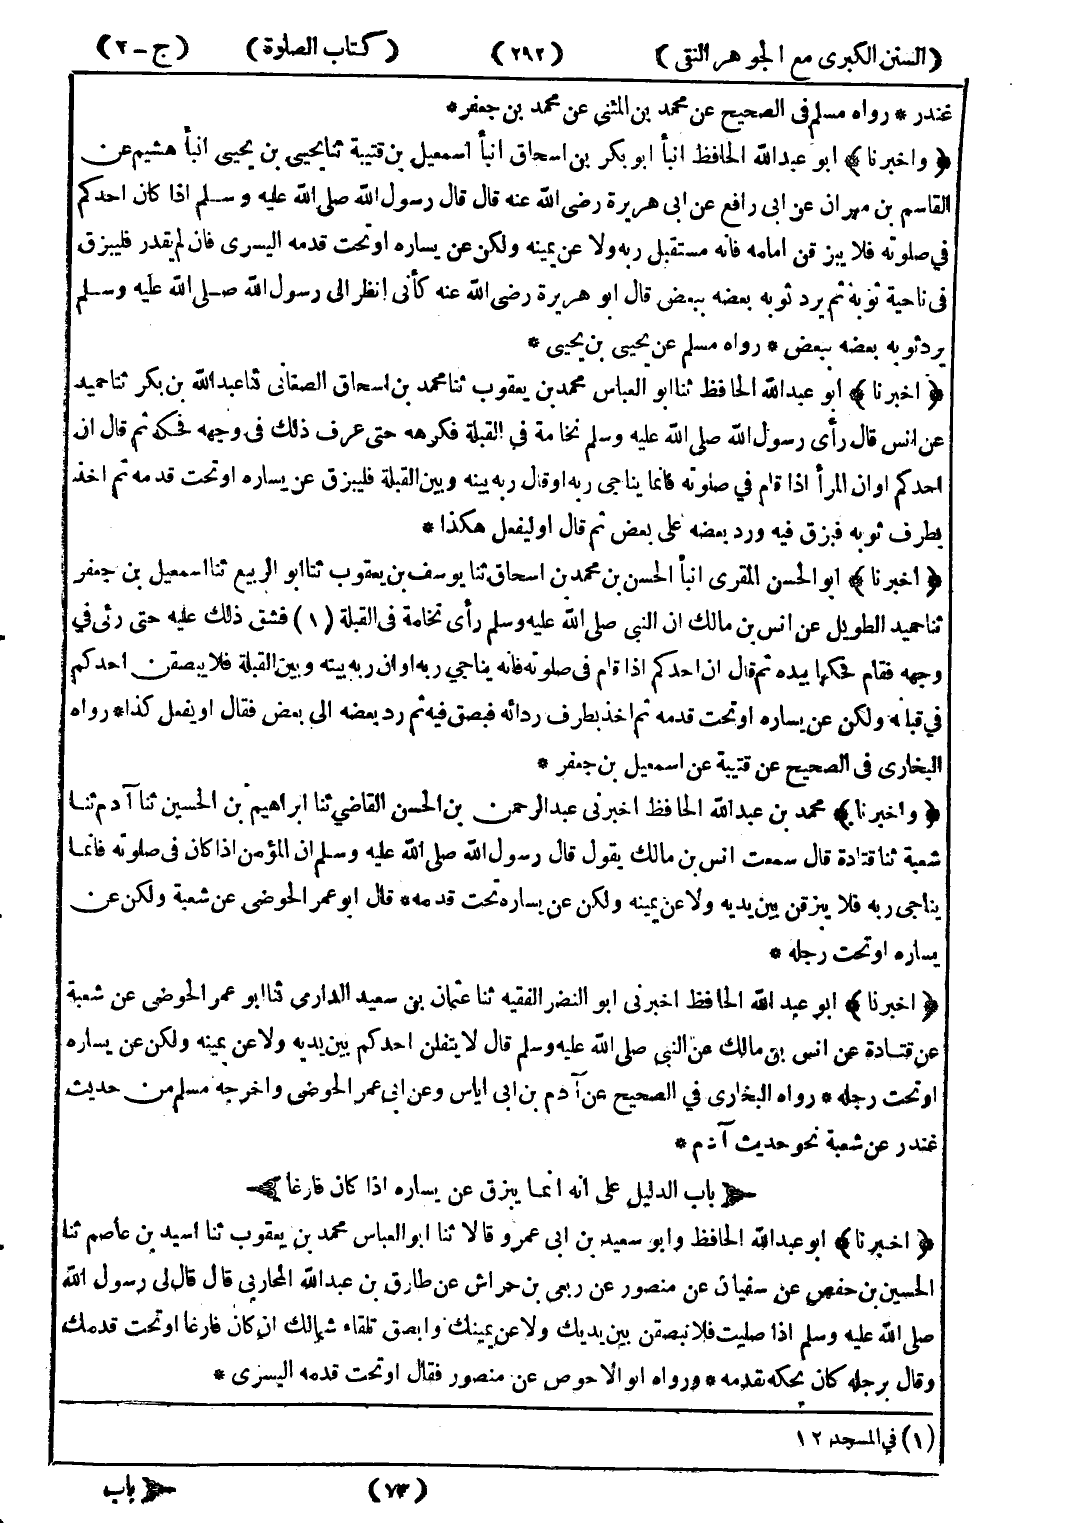 (السنن الكبرى مع الجوهر النقى) (٢٩٢) (كتاب الصلوة) (ج - ٢)
غندر * رواه مسلم فى الصحيح عن محمد بن المثنى عن محمد بن جعفر *
﴿واخبرنا﴾ ابو عبدالله الحافظ انبأ ابو بكر بن اسحاق انبأ اسمعيل بن قتيبة ثنا يحيى بن يحيى انبأ هشيم عن
القاسم بن مهران عن ابى رافع عن ابى هريرة رضى الله عنه قال قال رسول الله صلى الله عليه وسلم اذا كان احدكم
في صلوته فلا يبزقن امامه فانه مستقبل ربه ولا عن يمينه ولكن عن يساره اوتحت قدمه اليسرى فان لم يقدر فليبزق
فى ناحية ثوبه ثم يرد ثوبه بعضه ببعض قال ابو هريرة رضى الله عنه كأنى انظر الى رسول الله صلى الله عليه وسلم
يرد ثوبه بعضه ببعض * رواه مسلم عن يحيى بن يحيى *
﴿اخبرنا﴾ ابو عبدالله الحافظ ثنا ابو العباس محمد بن يعقوب ثنا محمد بن اسحاق الصغانى ثنا عبدالله بن بكر ثنا حميد
عن انس قال رأى رسول الله صلى الله عليه وسلم نخامة في القبلة فكرهه حتى عرف ذلك فى وجهه فحكه ثم قال ان
احدكم اوان المرأ اذا قام في صلوته فانما يناجى ربه اوقال ربه بينه وبين القبلة فليبزق عن يساره اوتحت قدمه ثم اخذ
بطرف ثوبه فبزق فيه ورد بعضه على بعض ثم قال اوليفعل هكذا *
﴿اخبرنا﴾ ابو الحسن المقرى انبأ الحسن بن محمد بن اسحاق ثنا يوسف بن يعقوب ثنا ابو الربيع ثنا اسمعيل بن جعفر
ثنا حميد الطويل عن انس بن مالك ان النبى صلى الله عليه وسلم رأى نخامة فى القبلة (١) فشق ذلك عليه حتى رئى في
وجهه فقام فحكها بيده ثم قال ان احدكم اذا قام فى صلوته فانه يناجي ربه اوان ربه بينه وبين القبلة فلا يبصقن احدكم
في قبلته ولكن عن يساره اوتحت قدمه ثم اخذ بطرف ردائه فبصق فيه ثم رد بعضه الى بعض فقال او يفعل كذا * رواه
البخارى فى الصحيح عن قتيبة عن اسمعيل بن جعفر *
﴿واخبرنا﴾ محمد بن عبدالله الحافظ اخبرنى عبدالرحمن بن الحسن القاضي ثنا ابراهيم بن الحسين ثنا آدم ثنا
شعبة ثنا قتادة قال سمعت انس بن مالك يقول قال رسول الله صلى الله عليه وسلم ان المؤمن اذا كان فى صلوته فانما
يناجى ربه فلا يبزقن بين يديه ولا عن يمينه ولكن عن يساره تحت قدمه * قال ابو عمر الحوضى عن شعبة ولكن عن
يساره اوتحت رجله *
﴿اخبرنا﴾ ابو عبد الله الحافظ اخبرنى ابو النضر الفقيه ثنا عثمان بن سعيد الدارمى ثنا ابو عمر الحوضى عن شعبة
عن قتادة عن انس بن مالك عن النبى صلى الله عليه وسلم قال لا يتفلن احدكم بين يديه ولا عن يمينه ولكن عن يساره
اوتحت رجله * رواه البخارى في الصحيح عن آدم بن ابى اياس وعن ابى عمر الحوضى واخرجه مسلم من حديث
غندر عن شعبة نحو حديث آدم *
باب الدليل على انه انما يبزق عن يساره اذا كان فارغا
﴿اخبرنا﴾ ابو عبدالله الحافظ وابو سعيد بن ابى عمرو قالا ثنا ابو العباس محمد بن يعقوب ثنا اسيد بن عاصم ثنا
الحسين بن حفص عن سفيان عن منصور عن ربعى بن حراش عن طارق بن عبدالله المحاربى قال قال لى رسول الله
صلى الله عليه وسلم اذا صليت فلا تبصقن بين يديك ولا عن يمينك وابصق تلقاء شمالك ان كان فارغا اوتحت قدمك
وقال برجله كان يحكه بقدمه * ورواه ابو الاحوص عن منصور فقال اوتحت قدمه اليسرى *
(١) في المسجد ١٢
(٧٣) باب